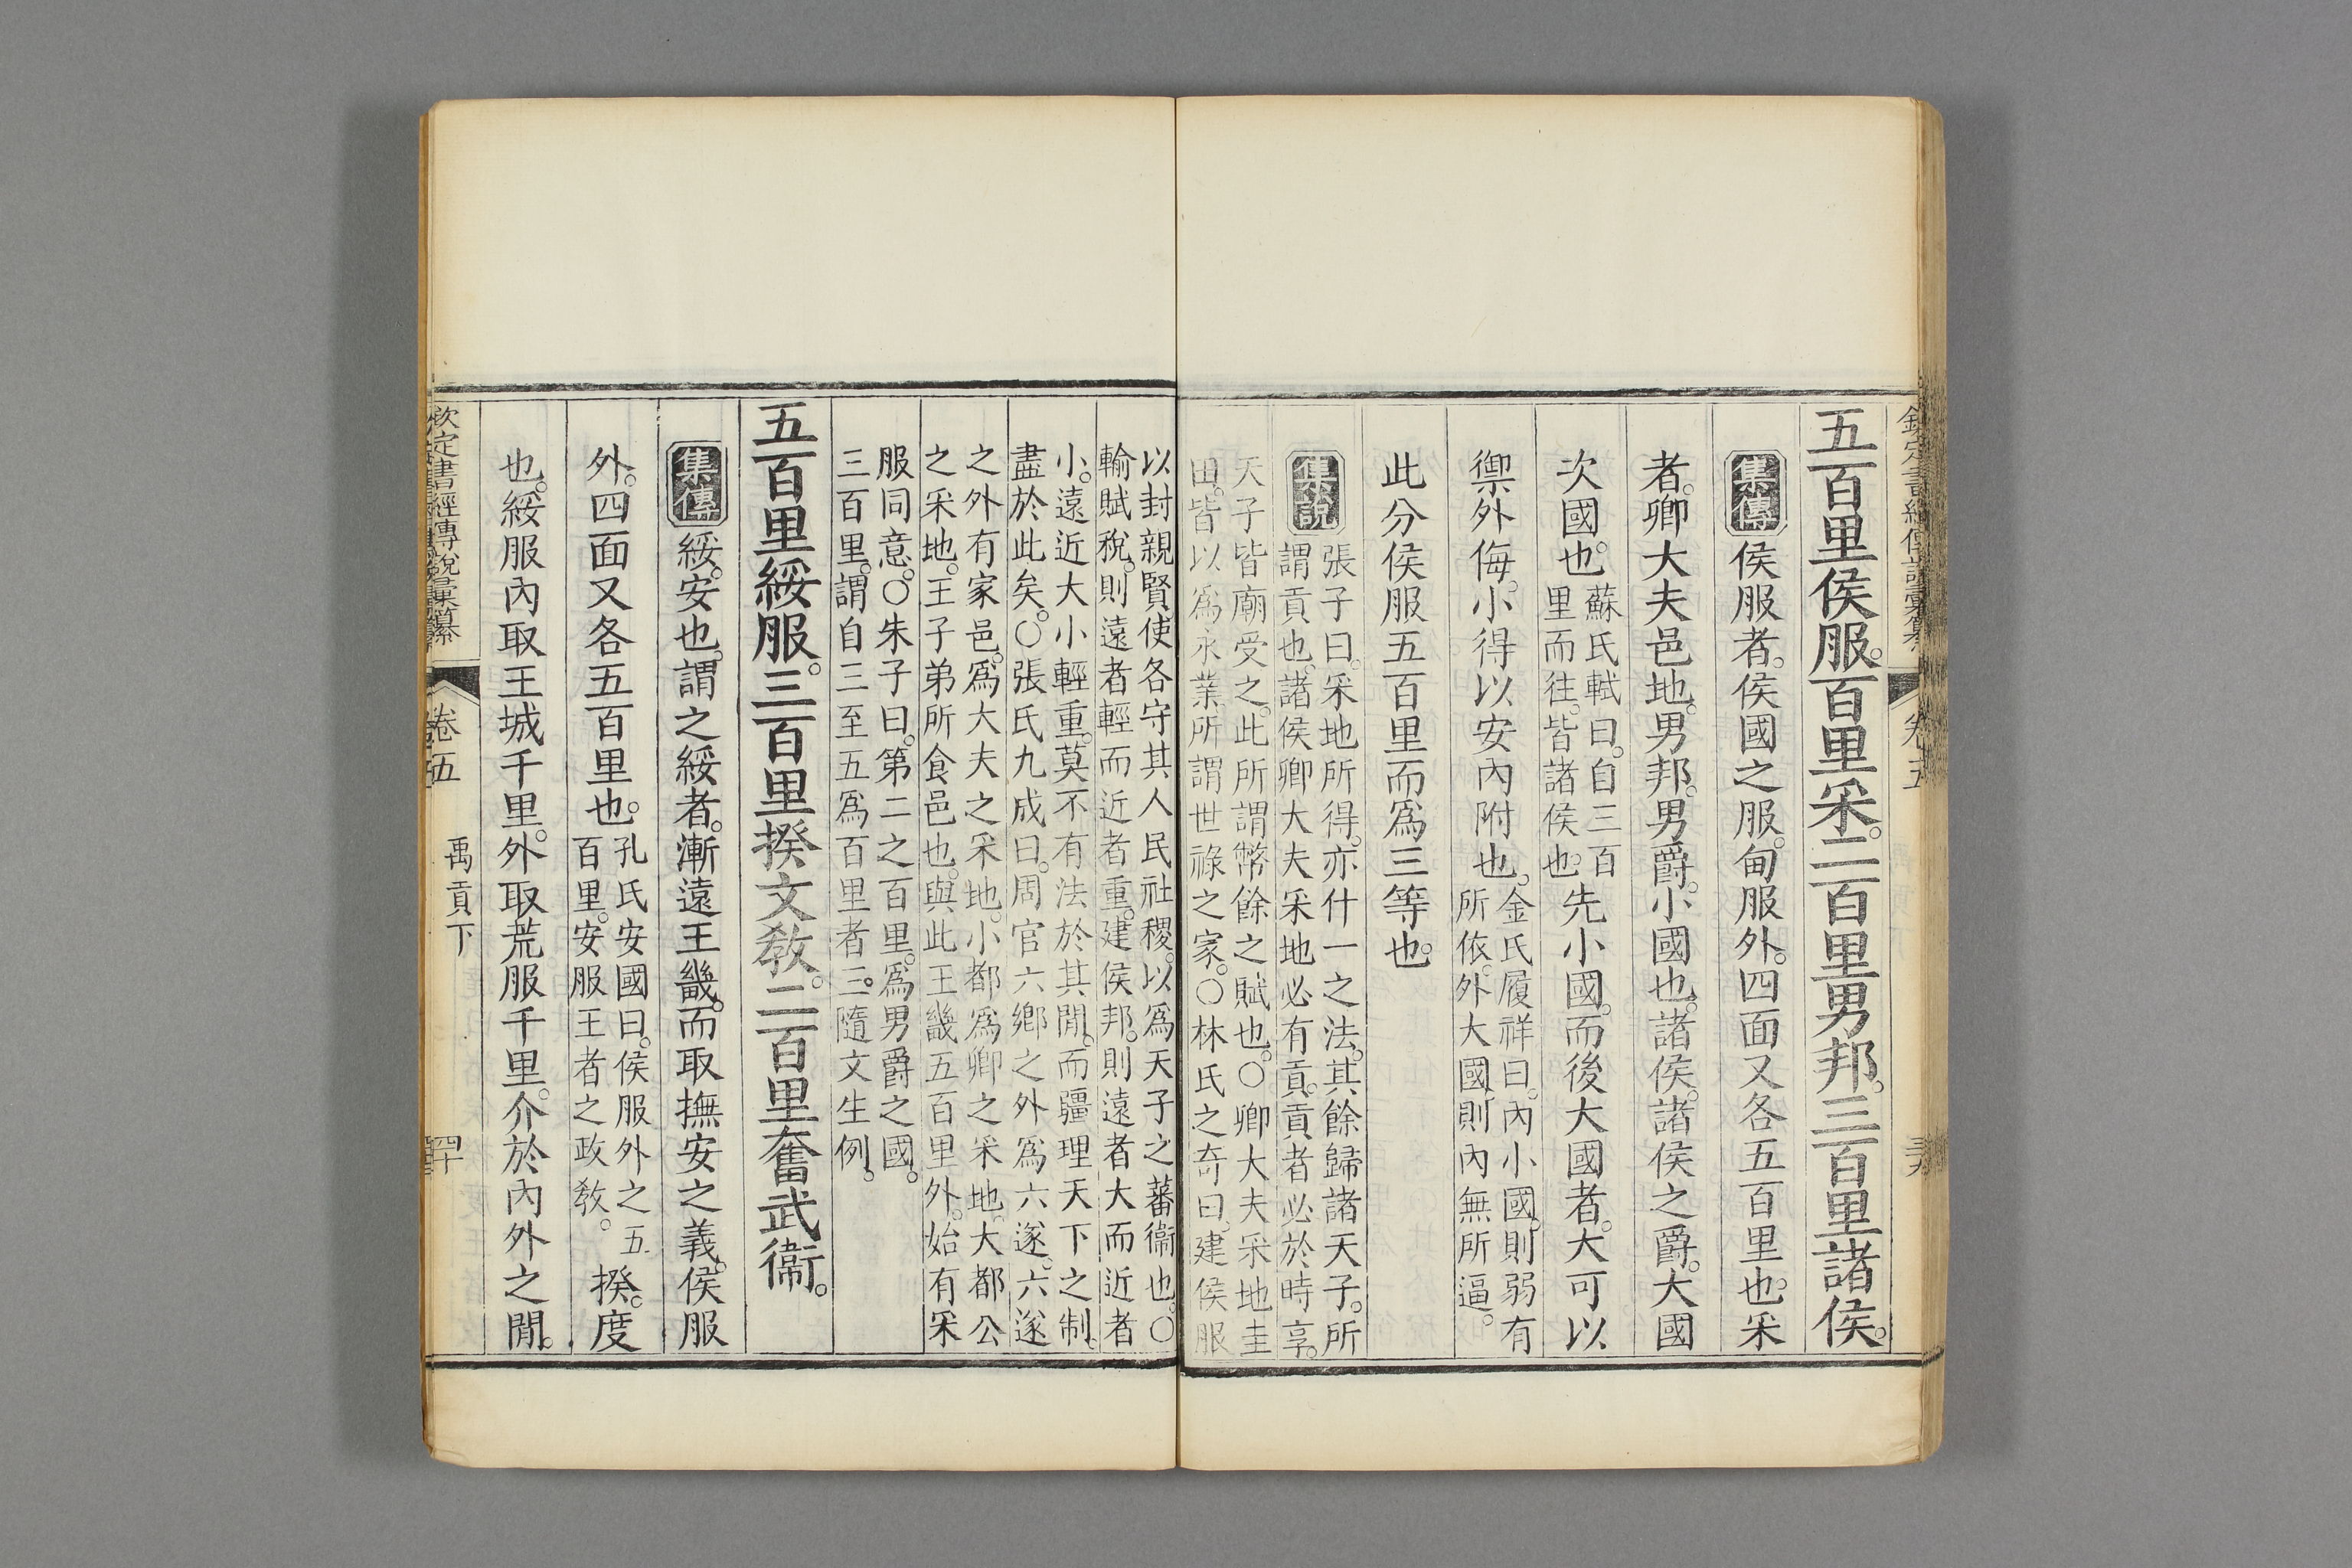 五百里侯服。百里采。二百里男邦。三百里諸侯。
集傳 侯服者。侯國之服。甸服外。四面又各五百里也。采
者。卿大夫邑地。男邦。男爵。小國也。諸侯。諸侯之爵。大國
次國也。
蘇氏軾曰。自三百
里而往。皆諸侯也。
先小國。而後大國者。大可以
禦外侮。小得以安內附也。
金氏履祥曰。內小國。則弱有
所依。外大國。則內無所逼。
此分侯服五百里而爲三等也。
集說
張子曰。采地所得。亦什一之法。其餘歸諸天子。所
謂貢也。諸侯卿大夫采地必有貢。貢者必於時享。
天子皆廟受之。此所謂幣餘之賦也。○卿大夫采地圭
田。皆以爲永業所謂世祿之家。○林氏之奇曰。建侯服
以封親賢使各守其人民社稷。以爲天子之蕃衞也。○
輸賦稅。則遠者輕而近者重。建侯邦。則遠者大而近者
小。遠近大小輕重。莫不有法於其閒。而疆理天下之制。
盡於此矣。○張氏九成曰。周官六鄉之外爲六遂。六遂
之外有家邑。爲大夫之采地。小都爲卿之采地。大都公
之采地。王子弟所食邑也。與此王畿五百里外。始有采
服同意。○朱子曰。第二之百里。爲男爵之國。
三百里。謂自三至五爲百里者三。隨文生例。
五百里綏服。三百里揆文敎。二百里奮武衞。
集傳 綏。安也。謂之綏者。漸遠王畿。而取撫安之義。侯服
外。四面又各五百里也。
孔氏安國曰。侯服外之五
百里。安服王者之政敎。
揆。度
也。綏服內取王城千里。外取荒服千里。介於內外之閒。
欽定書經傳說彙纂
卷五
禹貢下
四十